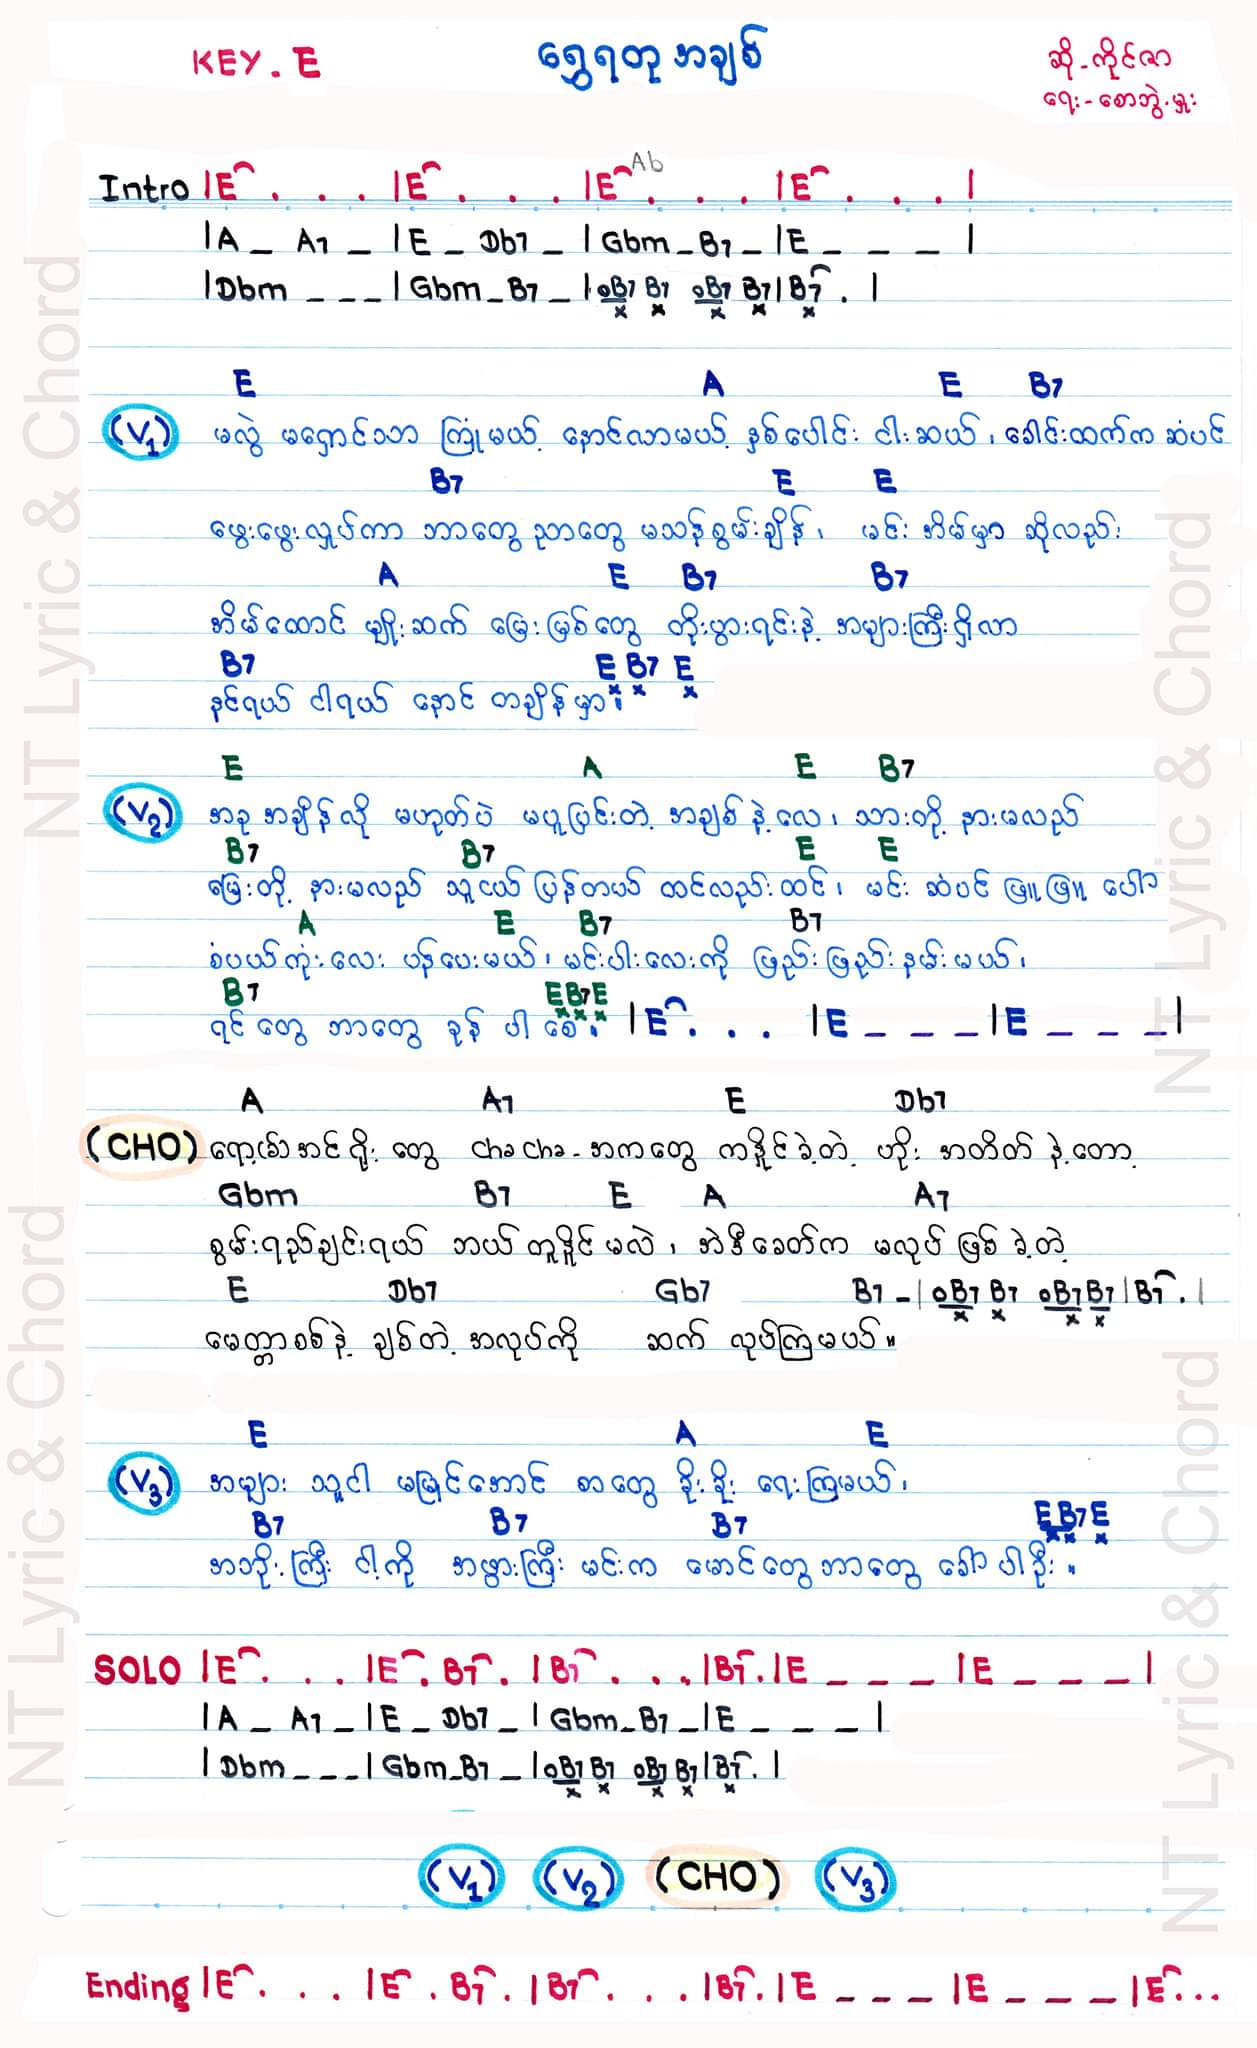 KEY. E
ရွှေရတု အချစ်
ဆို - ကိုင်ဇာ
ရေး - စောဘွဲ့မှူး
Intro |E . . . |E . . . |E Ab . . . |E . . . |
|A _ A7 _ |E _ Db7 _ |Gbm _ B7 _ |E _ _ _ |
|Dbm _ _ _ |Gbm _ B7 _ |oB7 B7 oB7 B7 |B7 . |
E A E B7
(V1) မလွဲ မရှောင်သာ ကြုံမယ့် နောင်လာမယ့် နှစ်ပေါင်း ငါးဆယ်၊ ခေါင်းထက်က ဆံပင်
B7 E E
ဖွေးဖွေးလှုပ်ကာ ဘာတွေ ညာတွေ မသန်စွမ်းချိန်၊ မင်း အိမ်မှာ ဆိုလည်း
A E B7 B7
အိမ်ထောင် မျိုးဆက် မြေးမြစ်တွေ တိုးပွားရင်းနဲ့ အများကြီးရှိလာ
B7 E B7 E
နင်ရယ် ငါရယ် နောင် တချိန်မှာ။
E A E B7
(V2) အခု အချိန်လို မဟုတ်ပဲ မပူပြင်းတဲ့ အချစ်နဲ့လေ၊ သားတို့ နားမလည်
B7 B7 E E
မြေးတို့ နားမလည် သူငယ်ပြန်တယ် ထင်လည်းထင်၊ မင်း ဆံပင်ဖြူဖြူ ပေါ်
A E B7 B7
စံပယ်ကုံးလေး ပန်ပေးမယ်၊ မင်းပါးလေးကို ဖြည်းဖြည်းနမ်းမယ်၊
B7 E B7 E
ရင်တွေ ဘာတွေ ခုန် ပါ စေ။ |E . . . |E _ _ _ |E _ _ _ |
A A7 E Db7
(CHO) ရော့ခ်အင်ရိုး တွေ cha cha - အကတွေ ကနိုင်ခဲ့တဲ့ ဟိုး အတိတ်နဲ့တော့
Gbm B7 E A A7
စွမ်းရည်ချင်းရယ် ဘယ်တူနိုင်မလဲ၊ အဲဒီခေတ်က မလုပ်ဖြစ်ခဲ့တဲ့
E Db7 Gb7 B7 _ |oB7 B7 oB7 B7 |B7 . |
မေတ္တာစစ်နဲ့ ချစ်တဲ့ အလုပ်ကို ဆက် လုပ်ကြမယ်။
E A E
(V3) အများ သူငါ မမြင်အောင် စာတွေ ခိုးခိုး ရေးကြမယ်၊
B7 B7 B7 E B7 E
အဘိုးကြီး ငါ့ကို အဖွားကြီး မင်းက မောင်တွေဘာတွေ ခေါ်ပါဦး။
SOLO |E . . . |E . B7 . |B7 . . . |B7 . |E _ _ _ |E _ _ _ |
|A _ A7 _ |E _ Db7 _ |Gbm _ B7 _ |E _ _ _ |
|Dbm _ _ _ |Gbm _ B7 _ |oB7 B7 oB7 B7 |B7 . |
(V1) (V2) (CHO) (V3)
Ending |E . . . |E . B7 . |B7 . . . |B7 . |E _ _ _ |E _ _ _ |E . . .
NT Lyric & Chord
NT Lyric & Chord
NT Lyric & Chord
NT Lyric & Chord